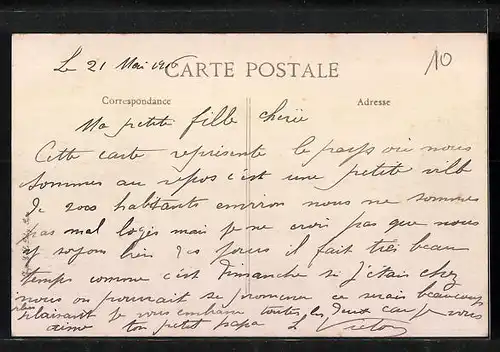 Le 21 Mai 1916
CARTE POSTALE
10
Correspondance
Adresse
Ma petite fille cherie
Cette carte represente le pays ou nous
sommes au repos c'est une petite ville
de 2000 habitants environ nous ne sommes
pas mal logés mais je ne crois pas que nous
y soyons bien des jours il fait tres beau
temps comme c'est Dimanche si j'etais chez
nous on pourrait se promener ce serais beaucoup
plus plaisant Je vous embrasse toutes les deux car je vous
aime ton petit papa